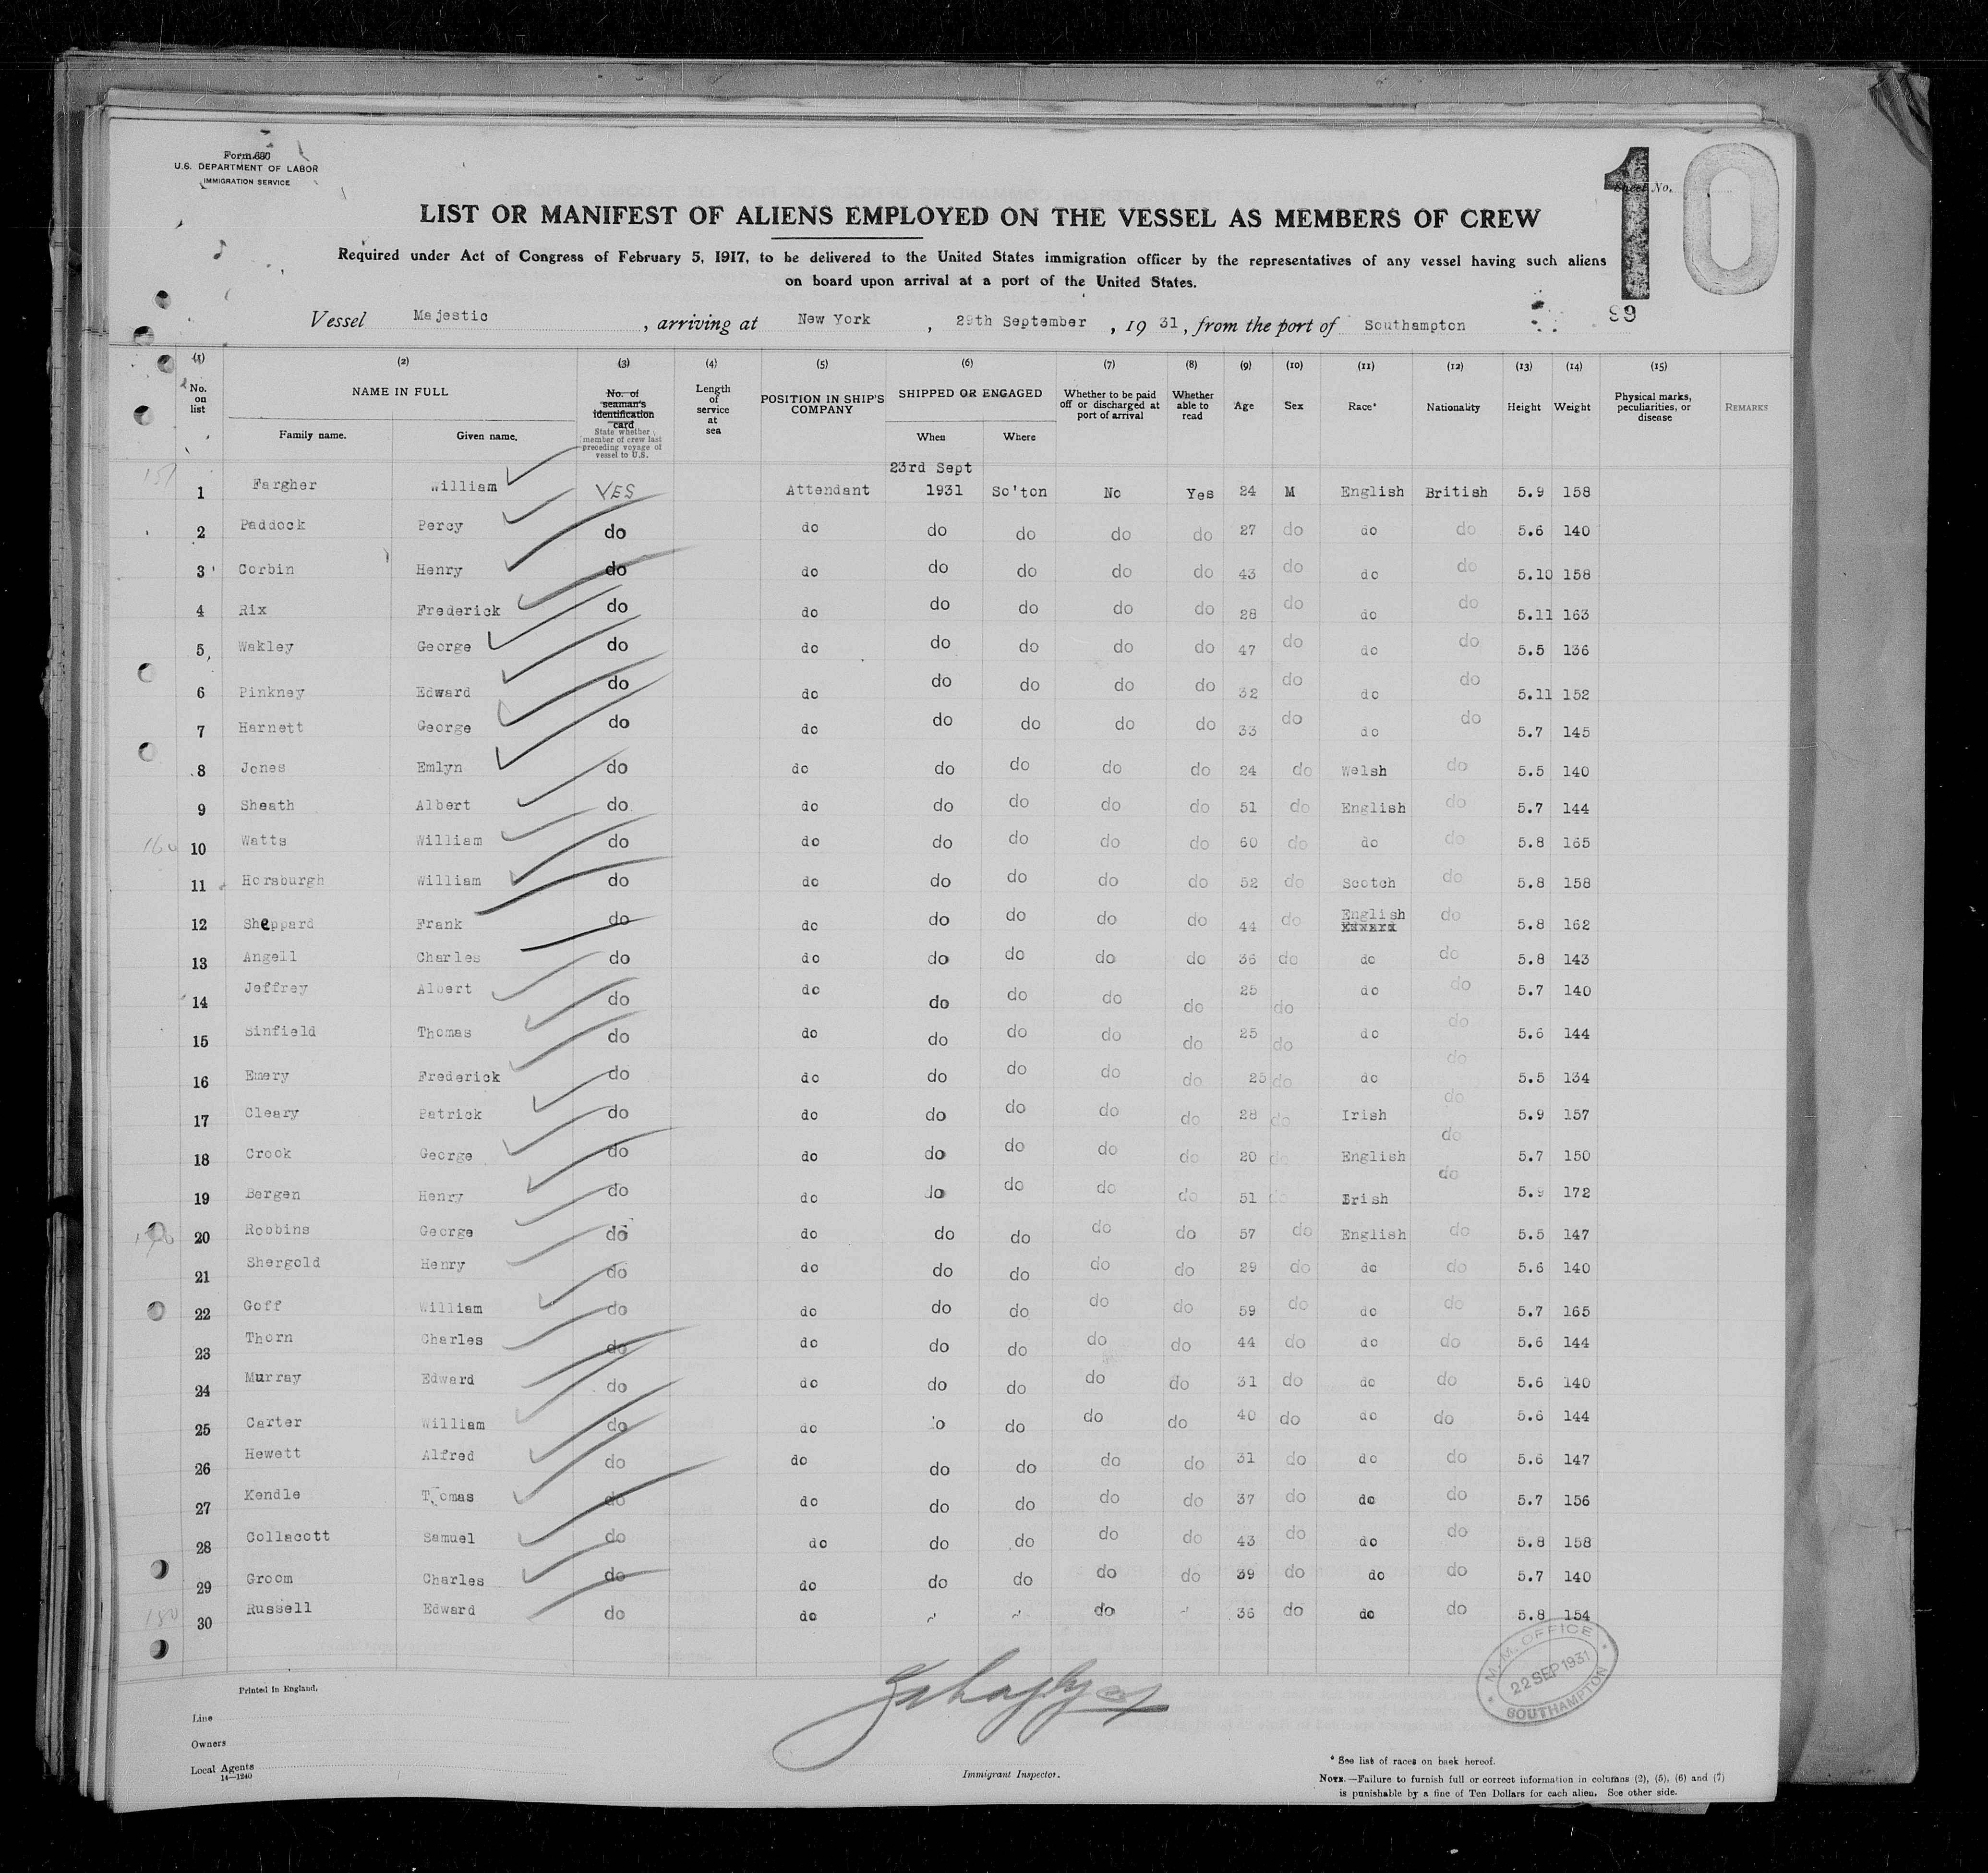 Form 680
U.S. DEPARTMENT OF LABOR
IMMIGRATION SERVICE
Sheet No.
10
LIST OR MANIFEST OF ALIENS EMPLOYED ON THE VESSEL AS MEMBERS OF CREW
Required under Act of Congress of February 5, 1917, to be delivered to the United States immigration officer by the representatives of any vessel having such aliens
on board upon arrival at a port of the United States.
99
Vessel Majestic, arriving at New York, 29th September, 19 31, from the port of Southampton
(1) (2) (3) (4) (5) (6) (7) (8) (9) (10) (11) (12) (13) (14) (15)
No. on list NAME IN FULL Family name. Given name. No. of seaman's identification card State whether member of crew last preceding voyage of vessel to U.S. Length of service at sea POSITION IN SHIP'S COMPANY SHIPPED OR ENGAGED When Where Whether to be paid off or discharged at port of arrival Whether able to read Age Sex Race* Nationality Height Weight Physical marks, peculiarities, or disease REMARKS
23rd Sept
157 1 Fargher William YES Attendant 1931 So'ton No Yes 24 M English British 5.9 158
2 Paddock Percy do do do do do do 27 do do do 5.6 140
3 Corbin Henry do do do do do do 43 do do do 5.10 158
4 Rix Frederick do do do do do do 28 do do do 5.11 163
5 Wakley George do do do do do do 47 do do do 5.5 136
6 Pinkney Edward do do do do do do 32 do do do 5.11 152
7 Harnett George do do do do do do 33 do do do 5.7 145
8 Jones Emlyn do do do do do do 24 do Welsh do 5.5 140
9 Sheath Albert do do do do do do 51 do English do 5.7 144
160 10 Watts William do do do do do do 60 do do do 5.8 165
11 Horsburgh William do do do do do do 52 do Scotch do 5.8 158
12 Sheppard Frank do do do do do do 44 do English Edward do 5.8 162
13 Angell Charles do do do do do do 36 do do do 5.8 143
14 Jeffrey Albert do do do do do do 25 do do do 5.7 140
15 Sinfield Thomas do do do do do do 25 do do do 5.6 144
16 Emery Frederick do do do do do do 25 do do do 5.5 134
17 Cleary Patrick do do do do do do 28 do Irish do 5.9 157
18 Crook George do do do do do do 20 do English do 5.7 150
19 Bergen Henry do do do do do do 51 do Irish do 5.9 172
170 20 Robbins George do do do do do do 57 do English do 5.5 147
21 Shergold Henry do do do do do do 29 do do do 5.6 140
22 Goff William do do do do do do 59 do do do 5.7 165
23 Thorn Charles do do do do do do 44 do do do 5.6 144
24 Murray Edward do do do do do do 31 do do do 5.6 140
25 Carter William do do do do do do 40 do do do 5.6 144
26 Hewett Alfred do do do do do do 31 do do do 5.6 147
27 Kendle Tomas do do do do do do 37 do do do 5.7 156
28 Collacott Samuel do do do do do do 43 do do do 5.8 158
29 Groom Charles do do do do do do 39 do do do 5.7 140
180 30 Russell Edward do do do 36 do do do 5.8 154
M.M. OFFICE
22 SEP 1931
SOUTHAMPTON
Printed in England.
Line
Owners
Local Agents
14—1240
Immigrant Inspector.
* See list of races on back hereof.
NOTE.—Failure to furnish full or correct information in columns (2), (5), (6) and (7)
is punishable by a fine of Ten Dollars for each alien. See other side.